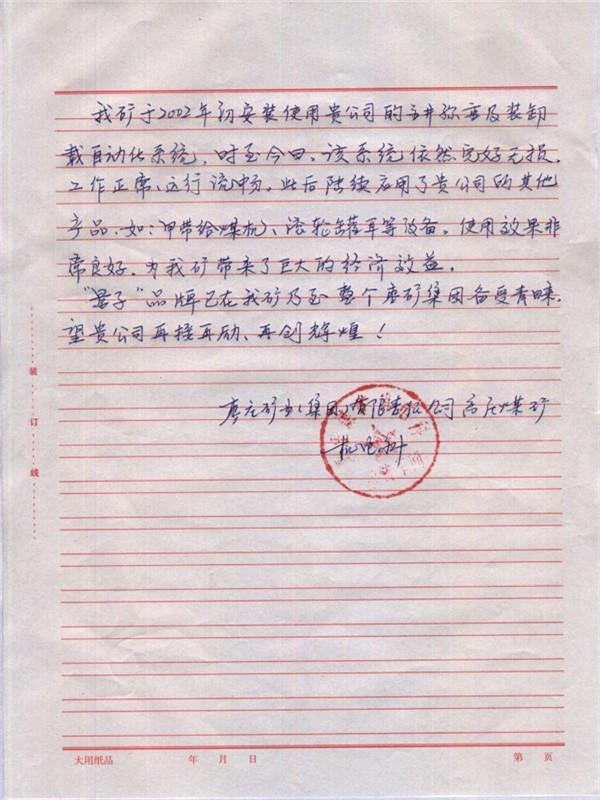 我矿于2002年初安装使用贵公司的主井称重及装卸
载自动化系统，时至今日，该系统依然完好无损，
工作正常、运行流畅。此后陆续启用了贵公司的其他
产品，如：甲带给煤机、滚轮罐耳等设备，使用效果非
常良好，为我矿带来了巨大的经济效益。
"量子"品牌已在我矿乃至整个枣矿集团备受青睐，
望贵公司再接再励、再创辉煌！
枣庄矿业(集团)有限责任公司高庄煤矿
机电科
装
订
线
大用纸品 年 月 日 第 页